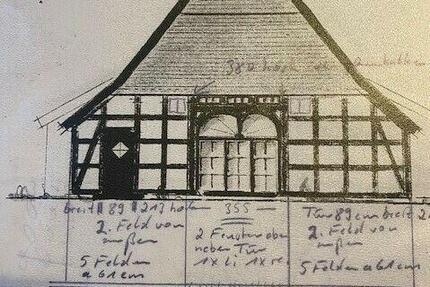 380 hoch
breit 89 213 hoch
2. Feld von
außen
5 Felder
a 61 cm
355
2 Fenster oben
neben Tür
1x li 1x re.
Tür 89 cm breit
2. Feld von
außen
5 Felder a 61 cm